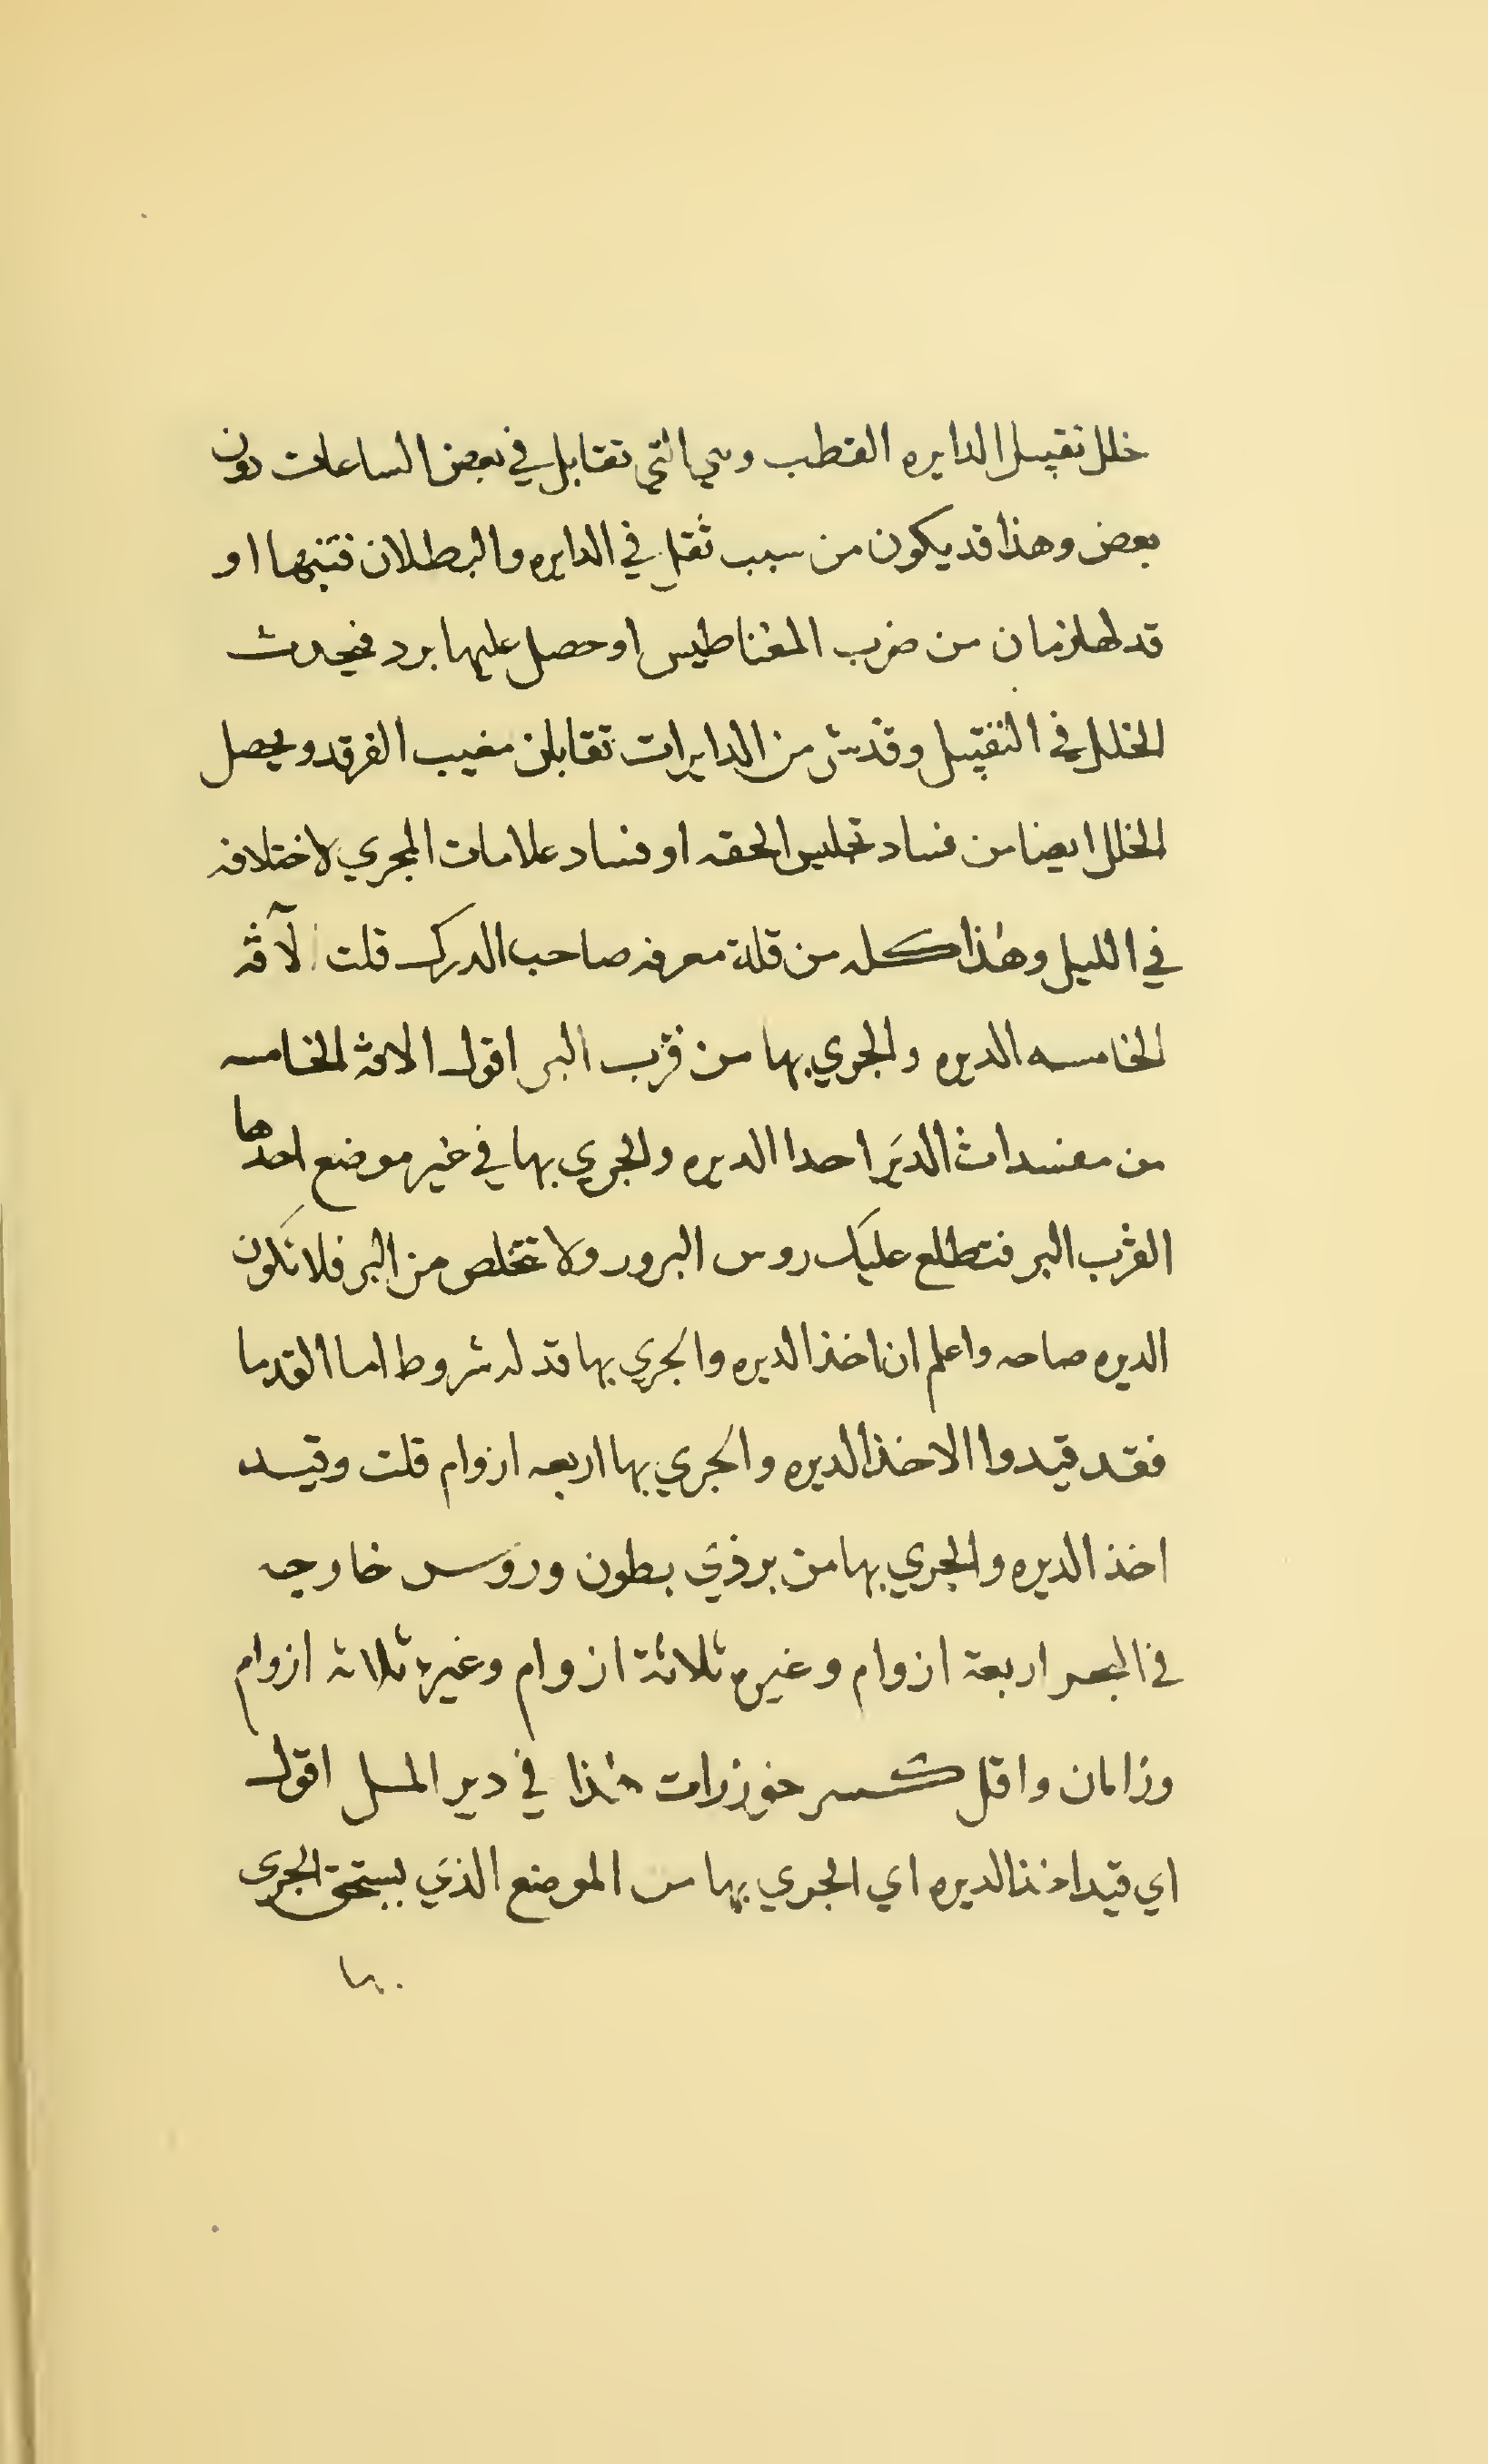 خلل تقبيل الدايره القطب وهي التي تقابل في بعض الساعات دون
بعض وهذا قد يكون من سبب ثقل في الدايره والبطلان فتنبها او
قد لها زمان من ضرب المغناطيس او حصل عليها برد فيحدث
الخلل في التقبيل وقد من الدايرات تقابلن مغيب الفرقد ويحصل
الخلل ايضا من فساد تجليس الحقه او فساد علامات المجري لاختلافه
في الليل وهذا كله من قلة معرفه صاحب الدرك قلت لآفه
الخامسه الديره والجري بها من قرب البر اقول الافه الخامسه
من مفسدات الدير احدا الديره والجري بها في غير موضع احدها
القرب البر فتطلع عليك روس البرور ولا تخلص من البر فلا تكون
الديره صاحه واعلم ان اخذ الديره والجري بها قد له شروط اما القدما
فقد قيدوا الاخذ الديره والجري بها اربعه ازوام قلت وقيد
اخذ الديره والجري بها من بر ذي بطون وروس خارجه
في البحر اربعة ازوام وغيره ثلاثة ازوام وغيره ثلاثه ازوام
وزامان واقل كسر هذا في دير المل اقول
اي قيد اخذ الديره اي الجري بها من الموضع الذي يستحق الجري
بها